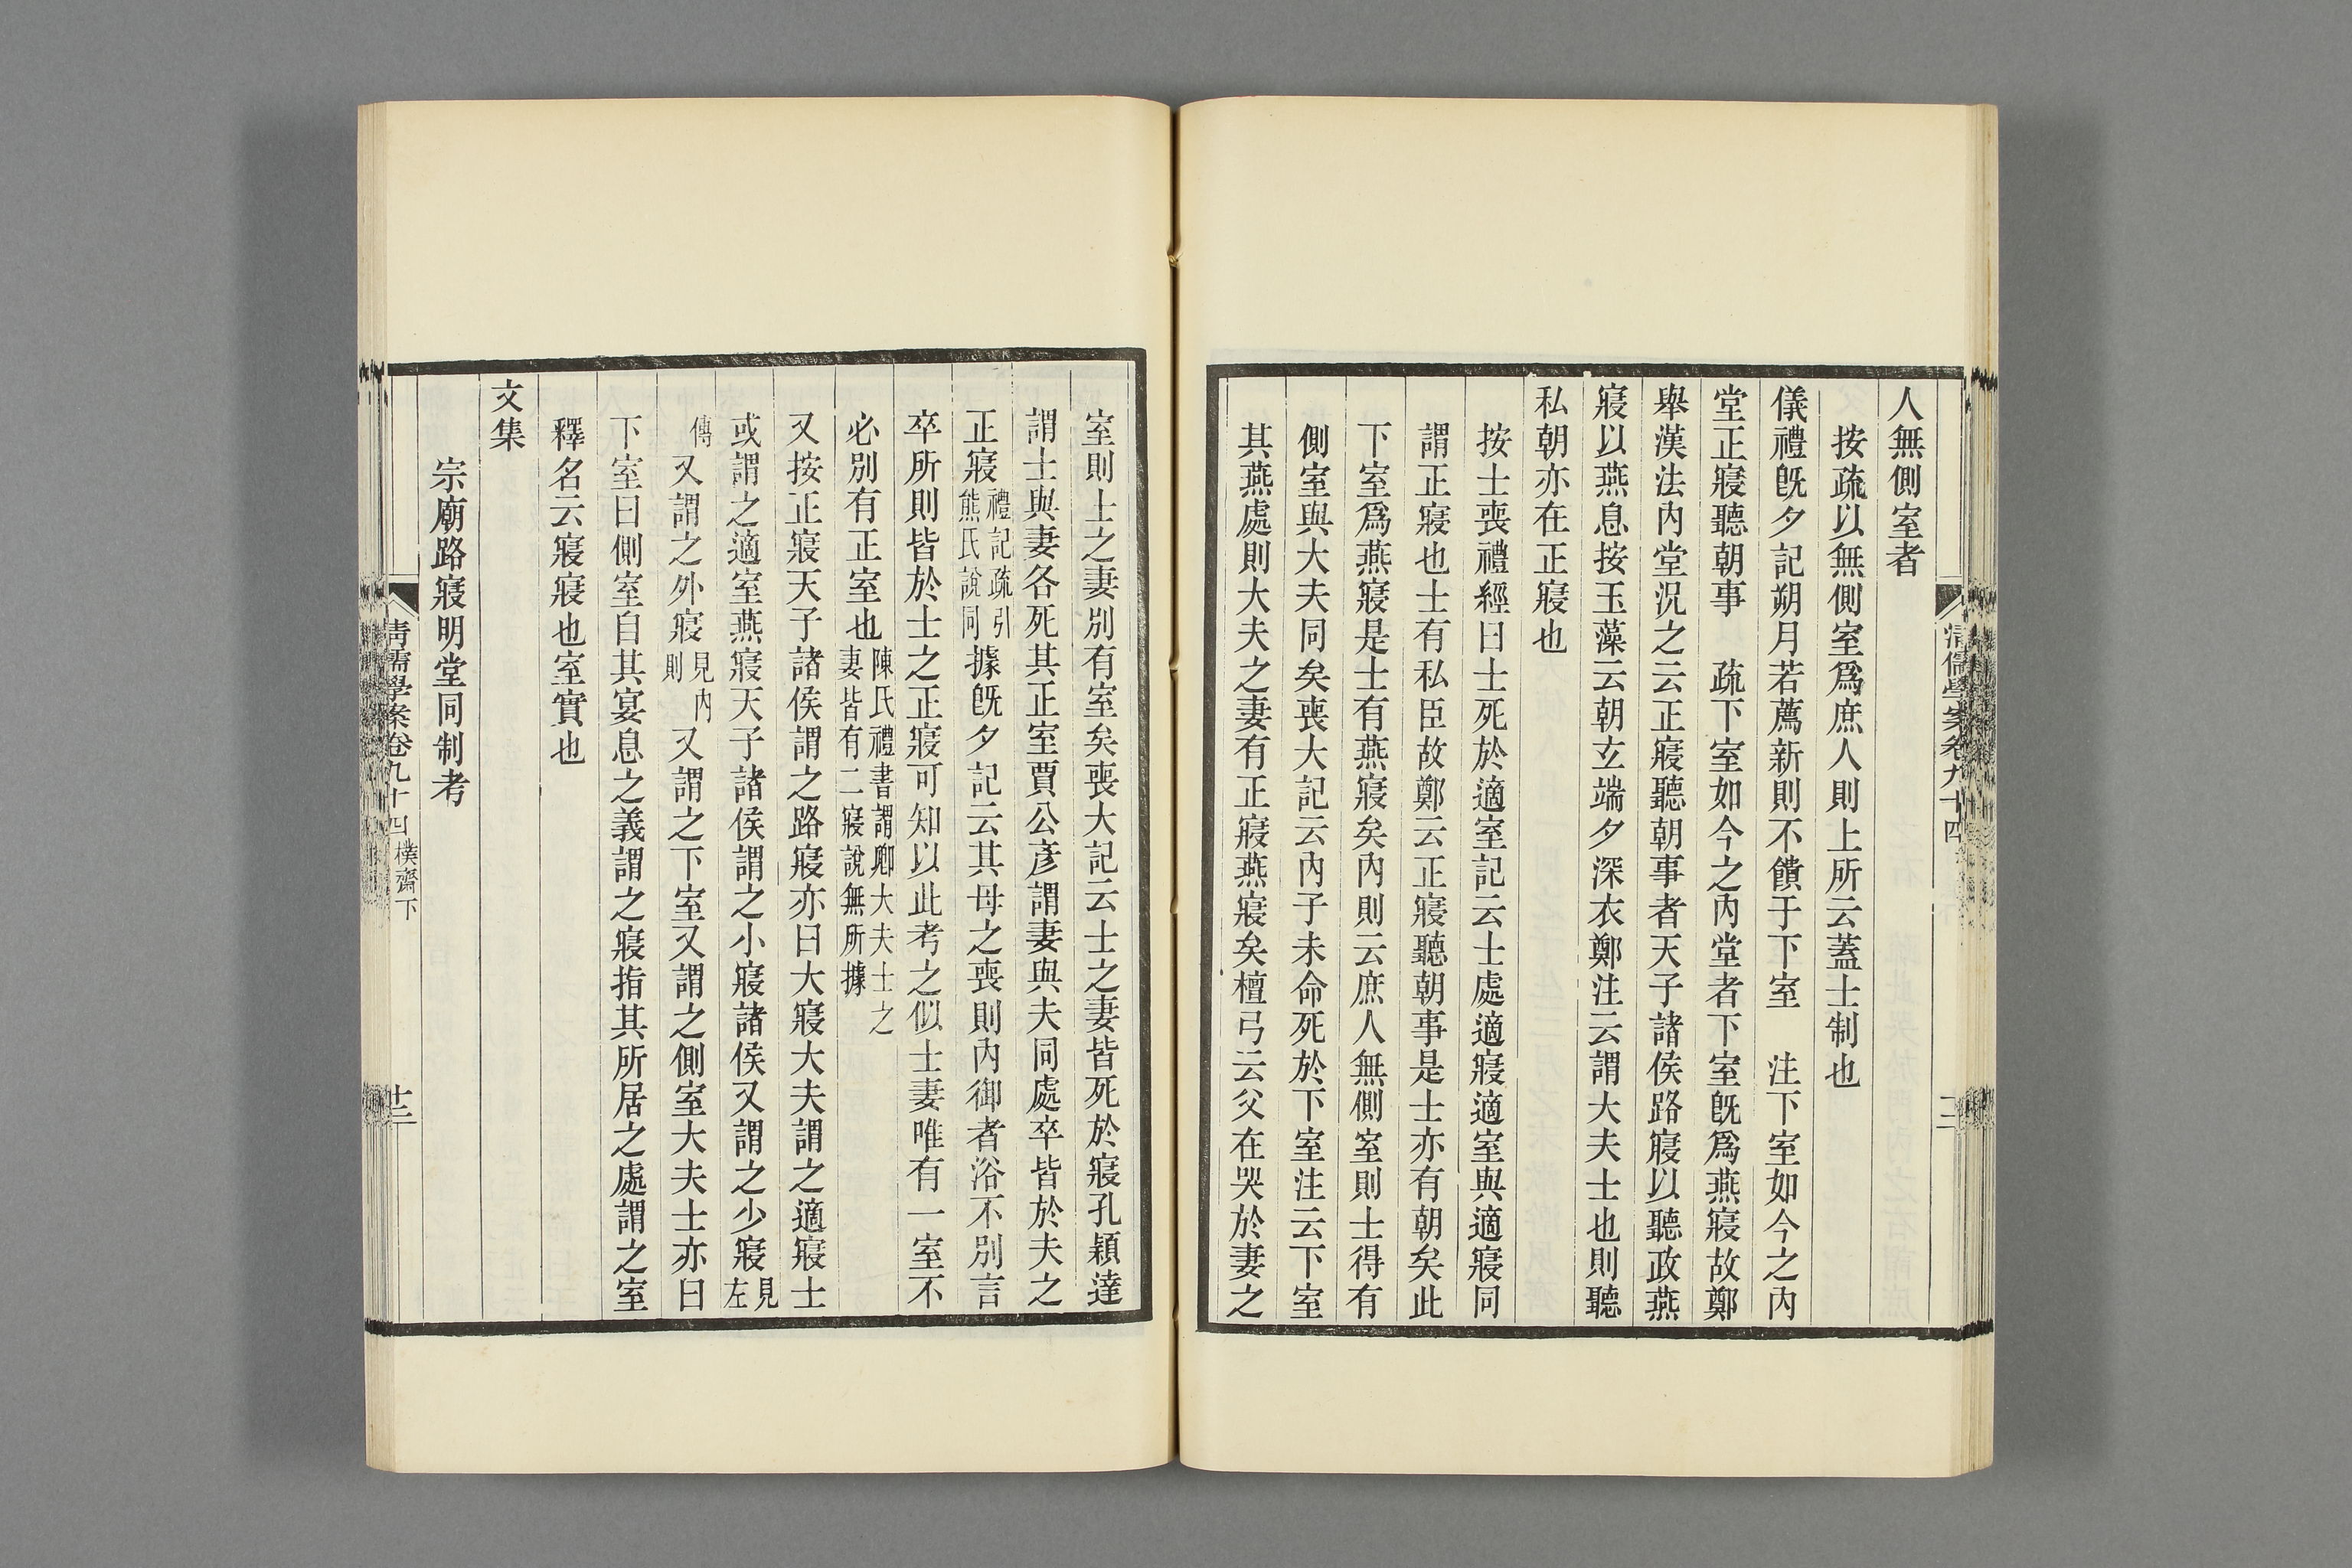 人無側室者
按疏以無側室爲庶人則上所云蓋士制也
儀禮旣夕記朔月若薦新則不饋于下室　注下室如今之內
堂正寢聽朝事　疏下室如今之內堂者下室旣爲燕寢故鄭
舉漢法內堂況之云正寢聽朝事者天子諸侯路寢以聽政燕
寢以燕息按玉藻云朝玄端夕深衣鄭注云謂大夫士也則聽
私朝亦在正寢也
按士喪禮經曰士死於適室記云士處適寢適室與適寢同
謂正寢也士有私臣故鄭云正寢聽朝事是士亦有朝矣此
下室爲燕寢是士有燕寢矣內則云庶人無側室則士得有
側室與大夫同矣喪大記云內子未命死於下室注云下室
其燕處則大夫之妻有正寢燕寢矣檀弓云父在哭於妻之
室則士之妻別有室矣喪大記云士之妻皆死於寢孔穎達
謂士與妻各死其正室賈公彥謂妻與夫同處卒皆於夫之
正寢禮記疏引熊氏說同據旣夕記云其母之喪則內御者浴不別言
卒所則皆於士之正寢可知以此考之似士妻唯有一室不
必別有正室也陳氏禮書謂卿大夫士之妻皆有二寢說無所據
又按正寢天子諸侯謂之路寢亦曰大寢大夫謂之適寢士
或謂之適室燕寢天子諸侯謂之小寢諸侯又謂之少寢見左
傳又謂之外寢見內則又謂之下室又謂之側室大夫士亦曰
下室曰側室自其宴息之義謂之寢指其所居之處謂之室
釋名云寢寢也室實也
文集
宗廟路寢明堂同制考
清儒學案卷九十四　樸齋下
十三